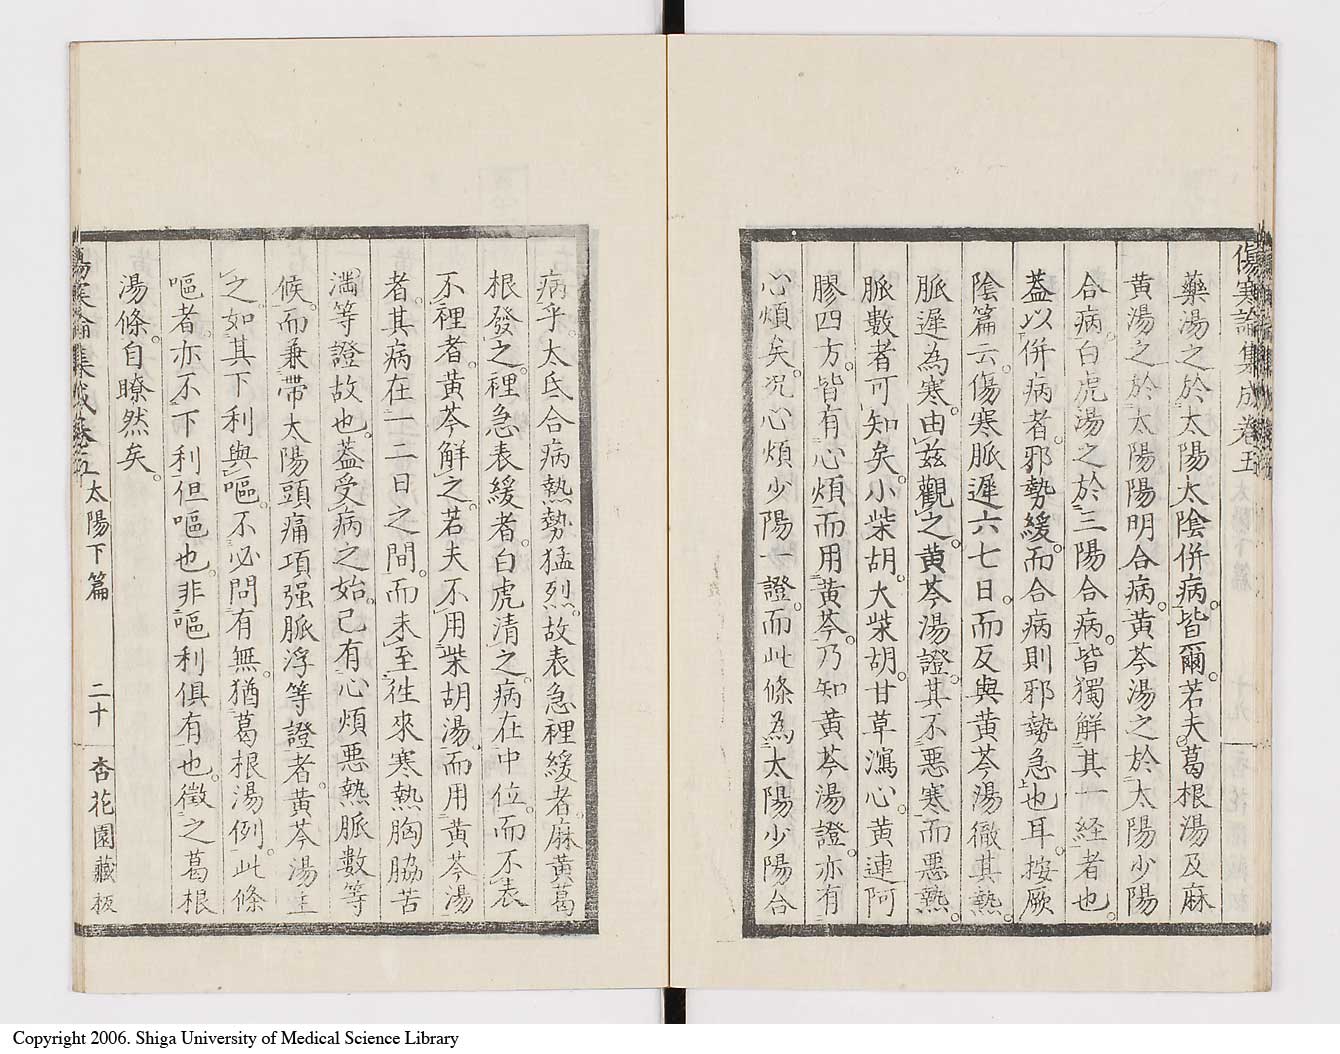 傷寒論集成卷五
藥湯之於太陽太陰併病。皆爾。若夫葛根湯及麻
黄湯之於太陽陽明合病。黄芩湯之於太陽少陽
合病。白虎湯之於三陽合病。皆獨解其一経者也。
蓋以併病者。邪勢緩。而合病則邪勢急也耳。按厥
陰篇云。傷寒脈遲六七日。而反與黄芩湯徹其熱。
脈遲為寒。由茲觀之。黄芩湯證。其不惡寒而惡熱。
脈數者可知矣。小柴胡。大柴胡。甘草瀉心。黄連阿
膠四方。皆有心煩而用黄芩。乃知黄芩湯證。亦有
心煩矣。况心煩少陽一證。而此條為太陽少陽合
病乎。太氐合病熱勢猛烈。故表急裡緩者。麻黄葛
根發之。裡急表緩者。白虎清之。病在中位。而不表
不裡者。黄芩解之。若夫不用柴胡湯。而用黄芩湯
者。其病在一二日之間。而未至徃來寒熱胸脇苦
満等證故也。蓋受病之始。已有心煩悪熱脈數等
候。而兼帶太陽頭痛項强脈浮等證者。黄芩湯主
之。如其下利與嘔。不必問有無。猶葛根湯例。此條
嘔者。亦不下利但嘔也。非嘔利俱有也。徵之葛根
湯條。自瞭然矣。
傷寒論集成卷五 太陽下篇 二十 杏花園藏板